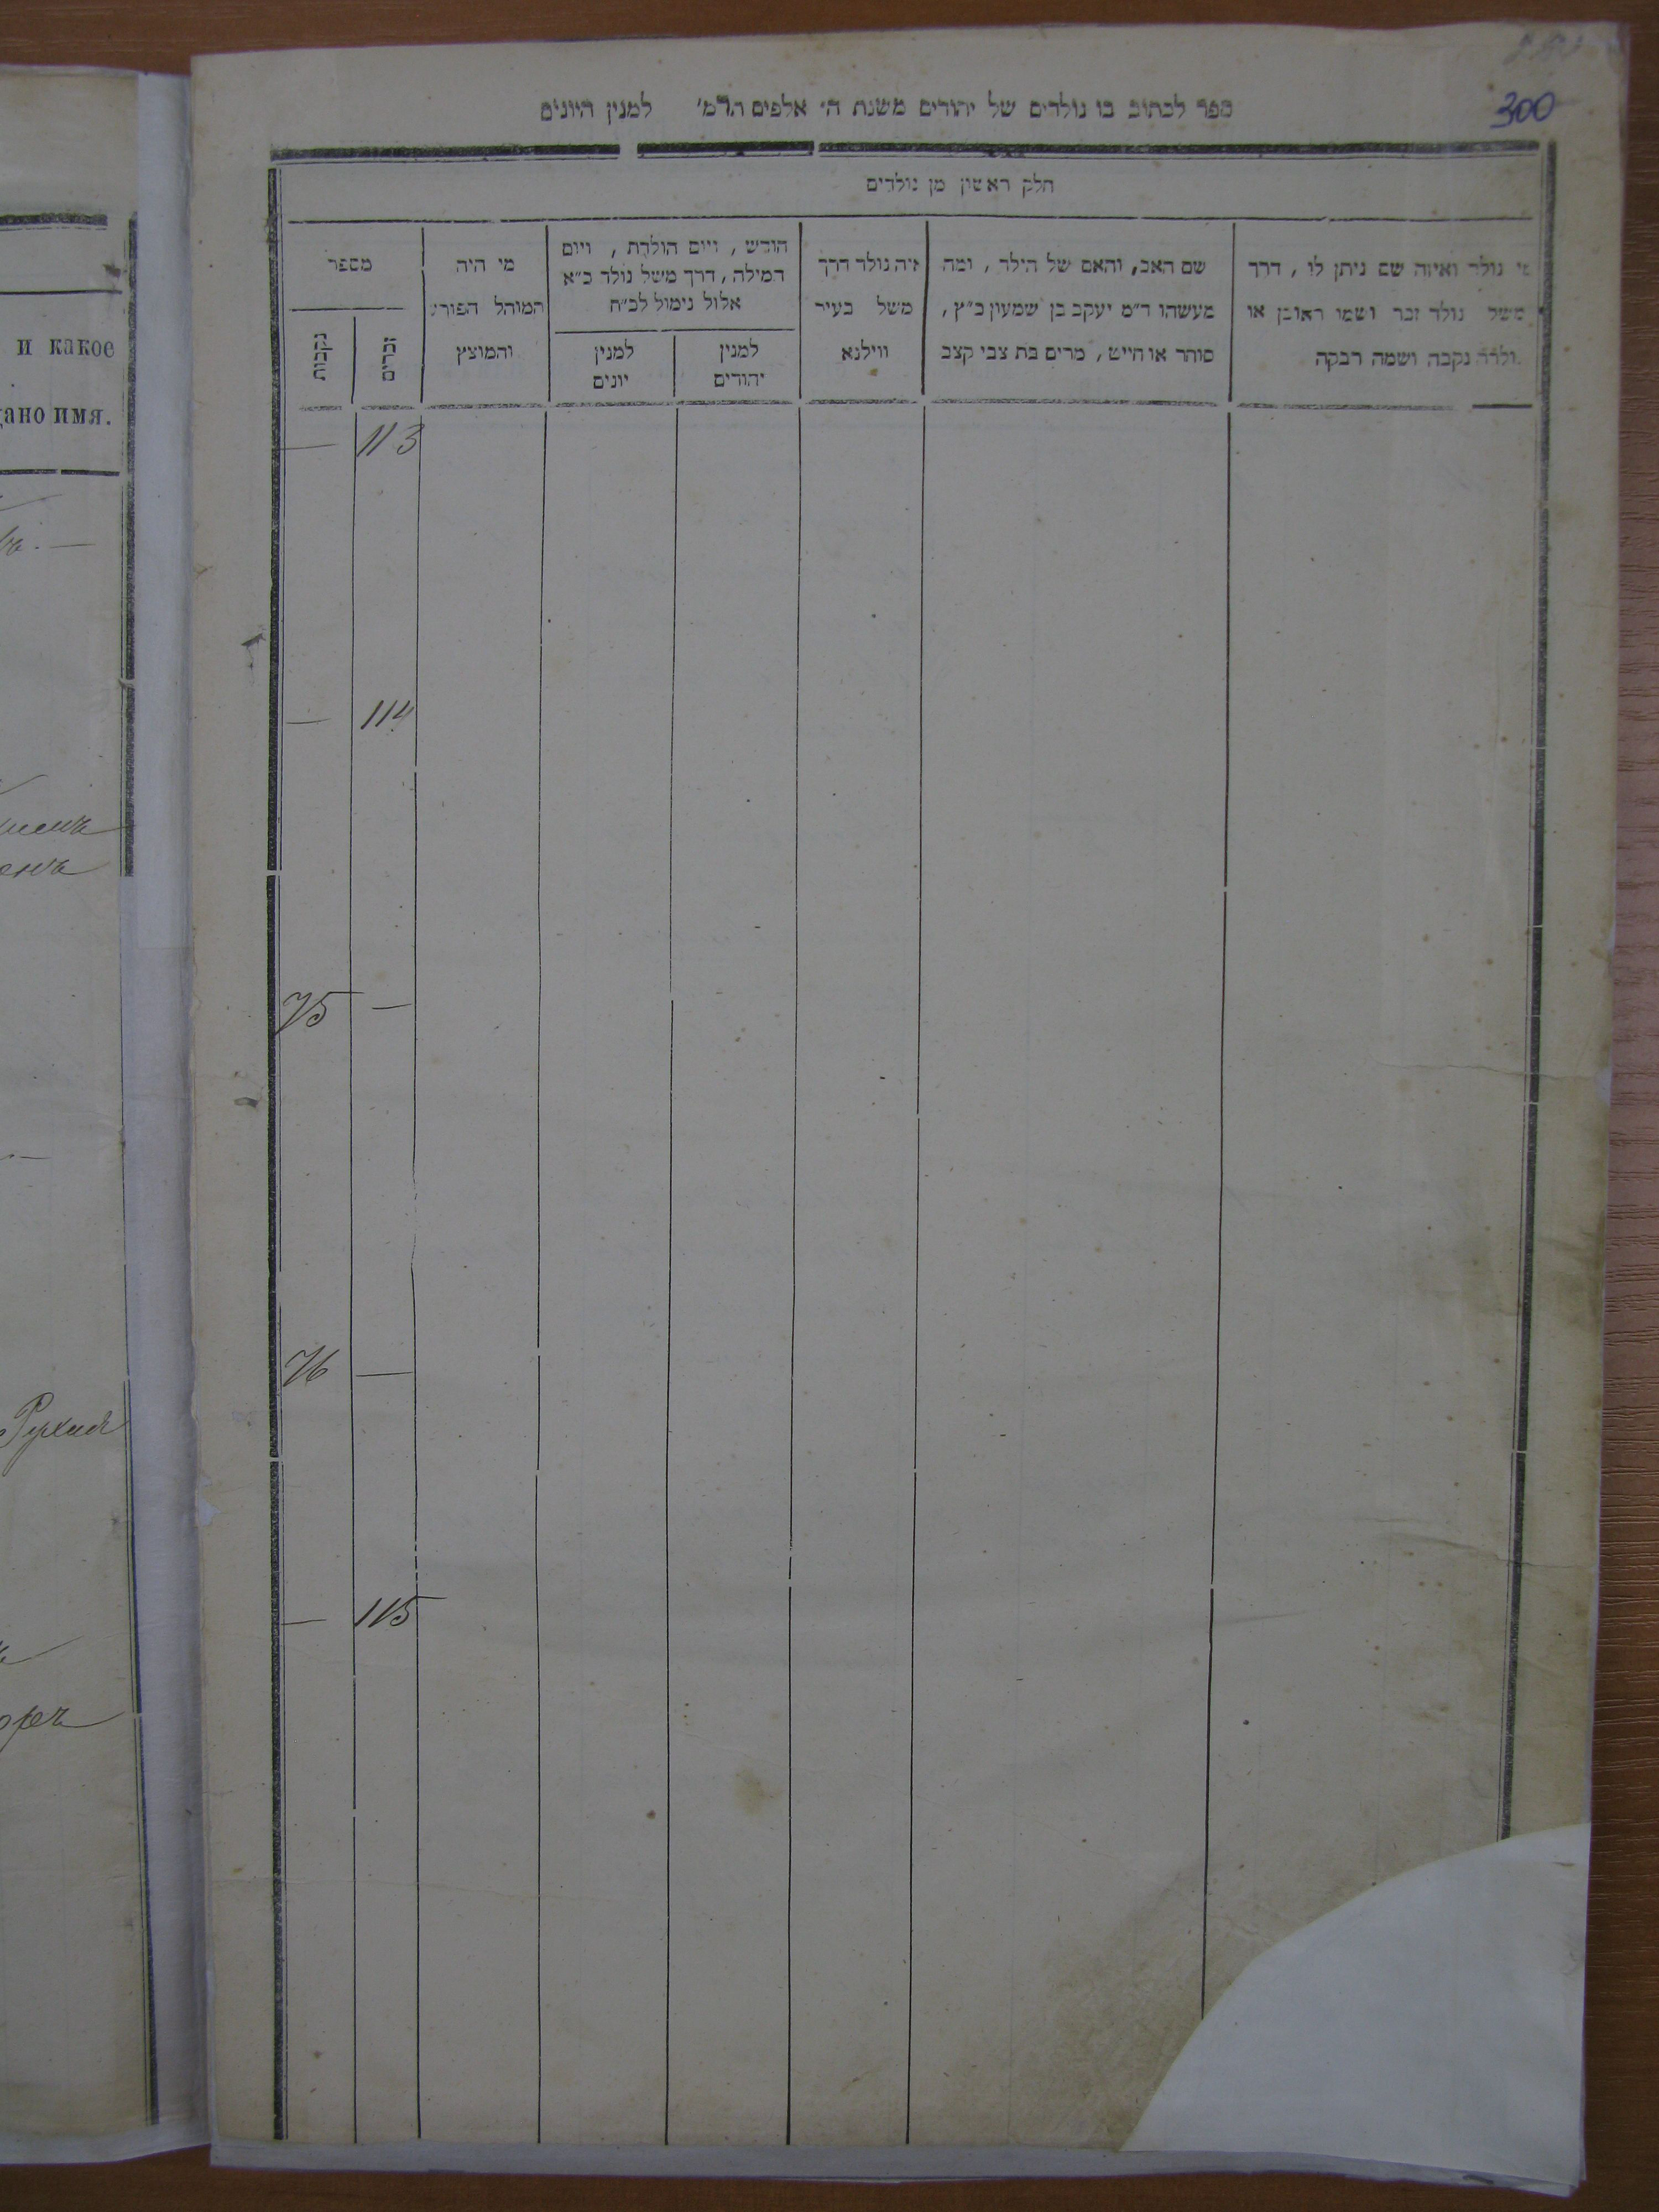 300
ספר לכתוב בו נולדים של יהודים משנת ה' אלפים תרמ' למנין היונים
חלק ראשון מן נולדים
מי נולד ואיזה שם ניתן לו, דרך
משל נולד זכר ושמו ראובן או
נולדה נקבה ושמה רבקה
שם האב, והאם של הילד, ומה
מעשהו ד״מ יעקב בן שמעון כ״ץ,
סוחר או חייט, מרים בת צבי קצב
איה נולד דרך
משל בעיר
ווילנא
חודש, ויום הולדת, ויום
המילה, דרך משל נולד כ״א
אלול נימול לכ״ח
למנין
יהודים
למנין
יונים
מי היה
המוהל הפורע
והמוצץ
מספר
זכרים
נקבות
— 113
— 114
75 —
76 —
— 115
и какое
дано имя.